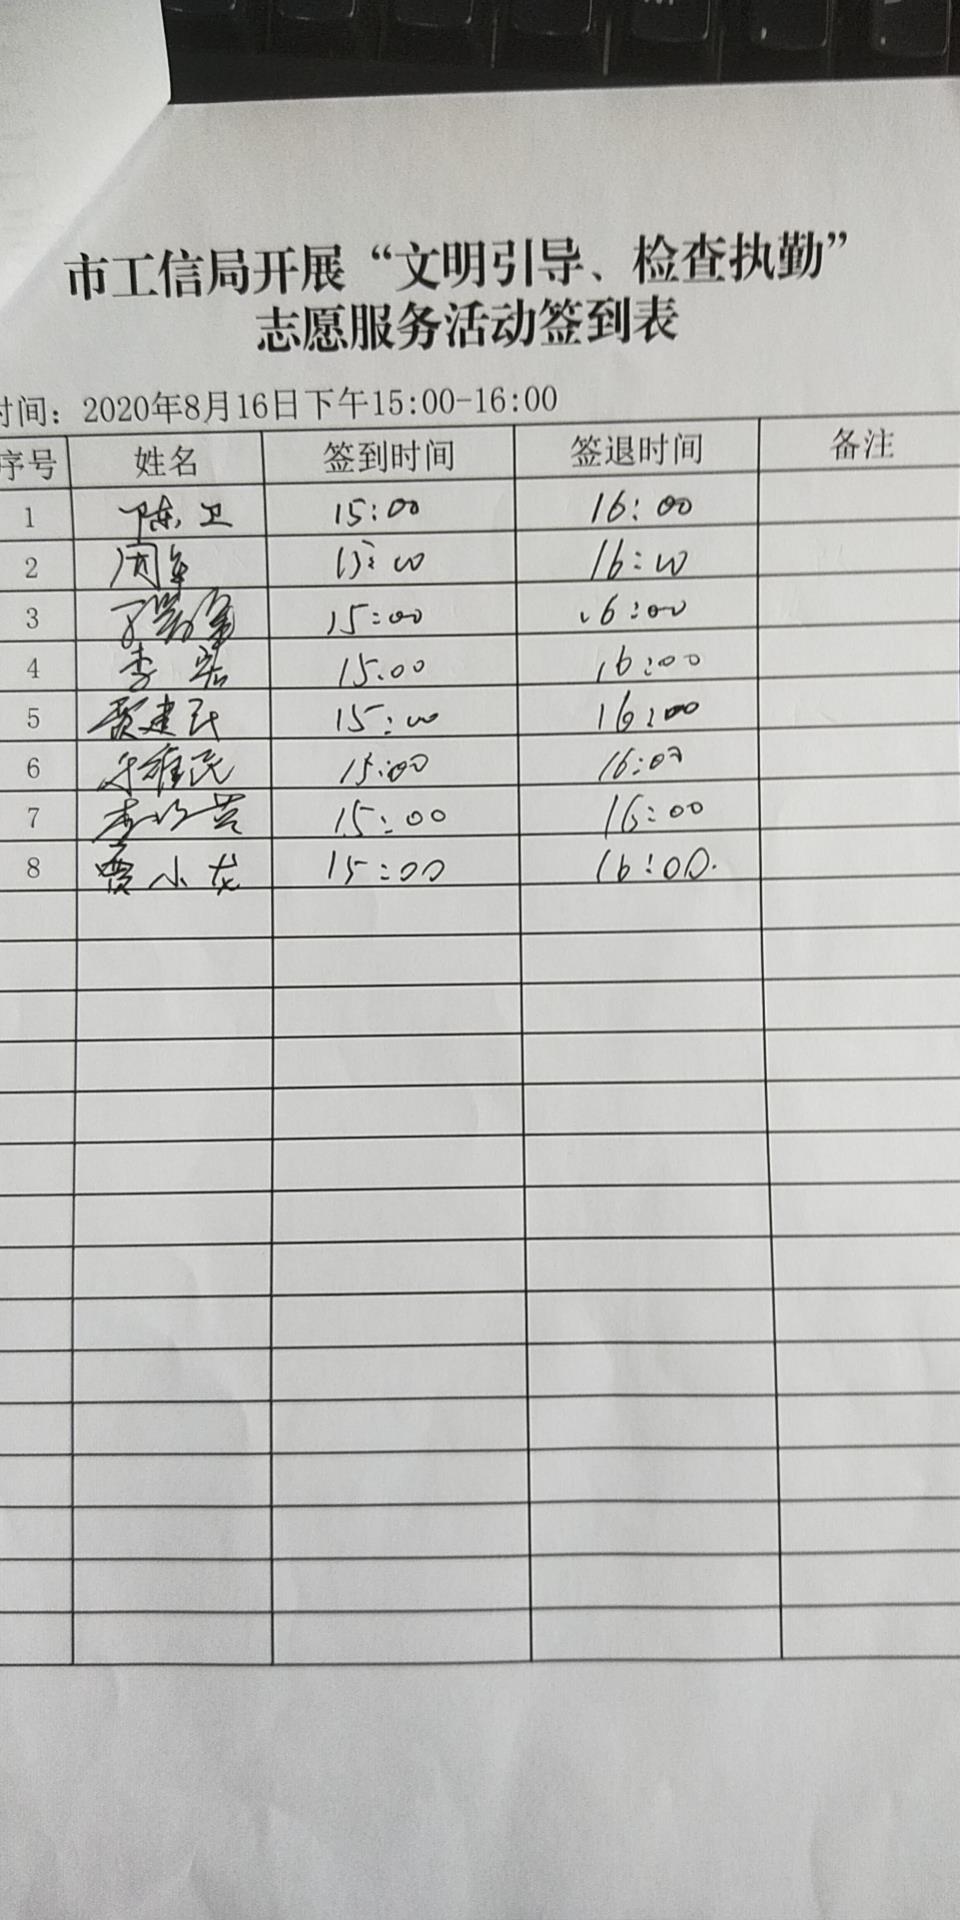 市工信局开展“文明引导、检查执勤”
志愿服务活动签到表
时间：2020年8月16日下午15:00-16:00
序号 姓名 签到时间 签退时间 备注
1 陈卫 15:00 16:00
2 周军 15:00 16:00
3 15:00 16:00
4 李宏 15.00 16:00
5 贾建民 15:00 16:00
6 15:00 16:00
7 15:00 16:00
8 贾小龙 15:00 16:00.